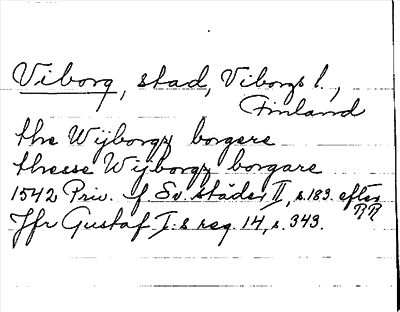 Viborg, stad, Viborgs l.,
Finland
the Wijborgz borgere
theese Wijborgz borgare
1542 Priv. f. Sv. städer II, s. 183. efter
RR
Jfr Gustaf I:s reg. 14, s. 343.